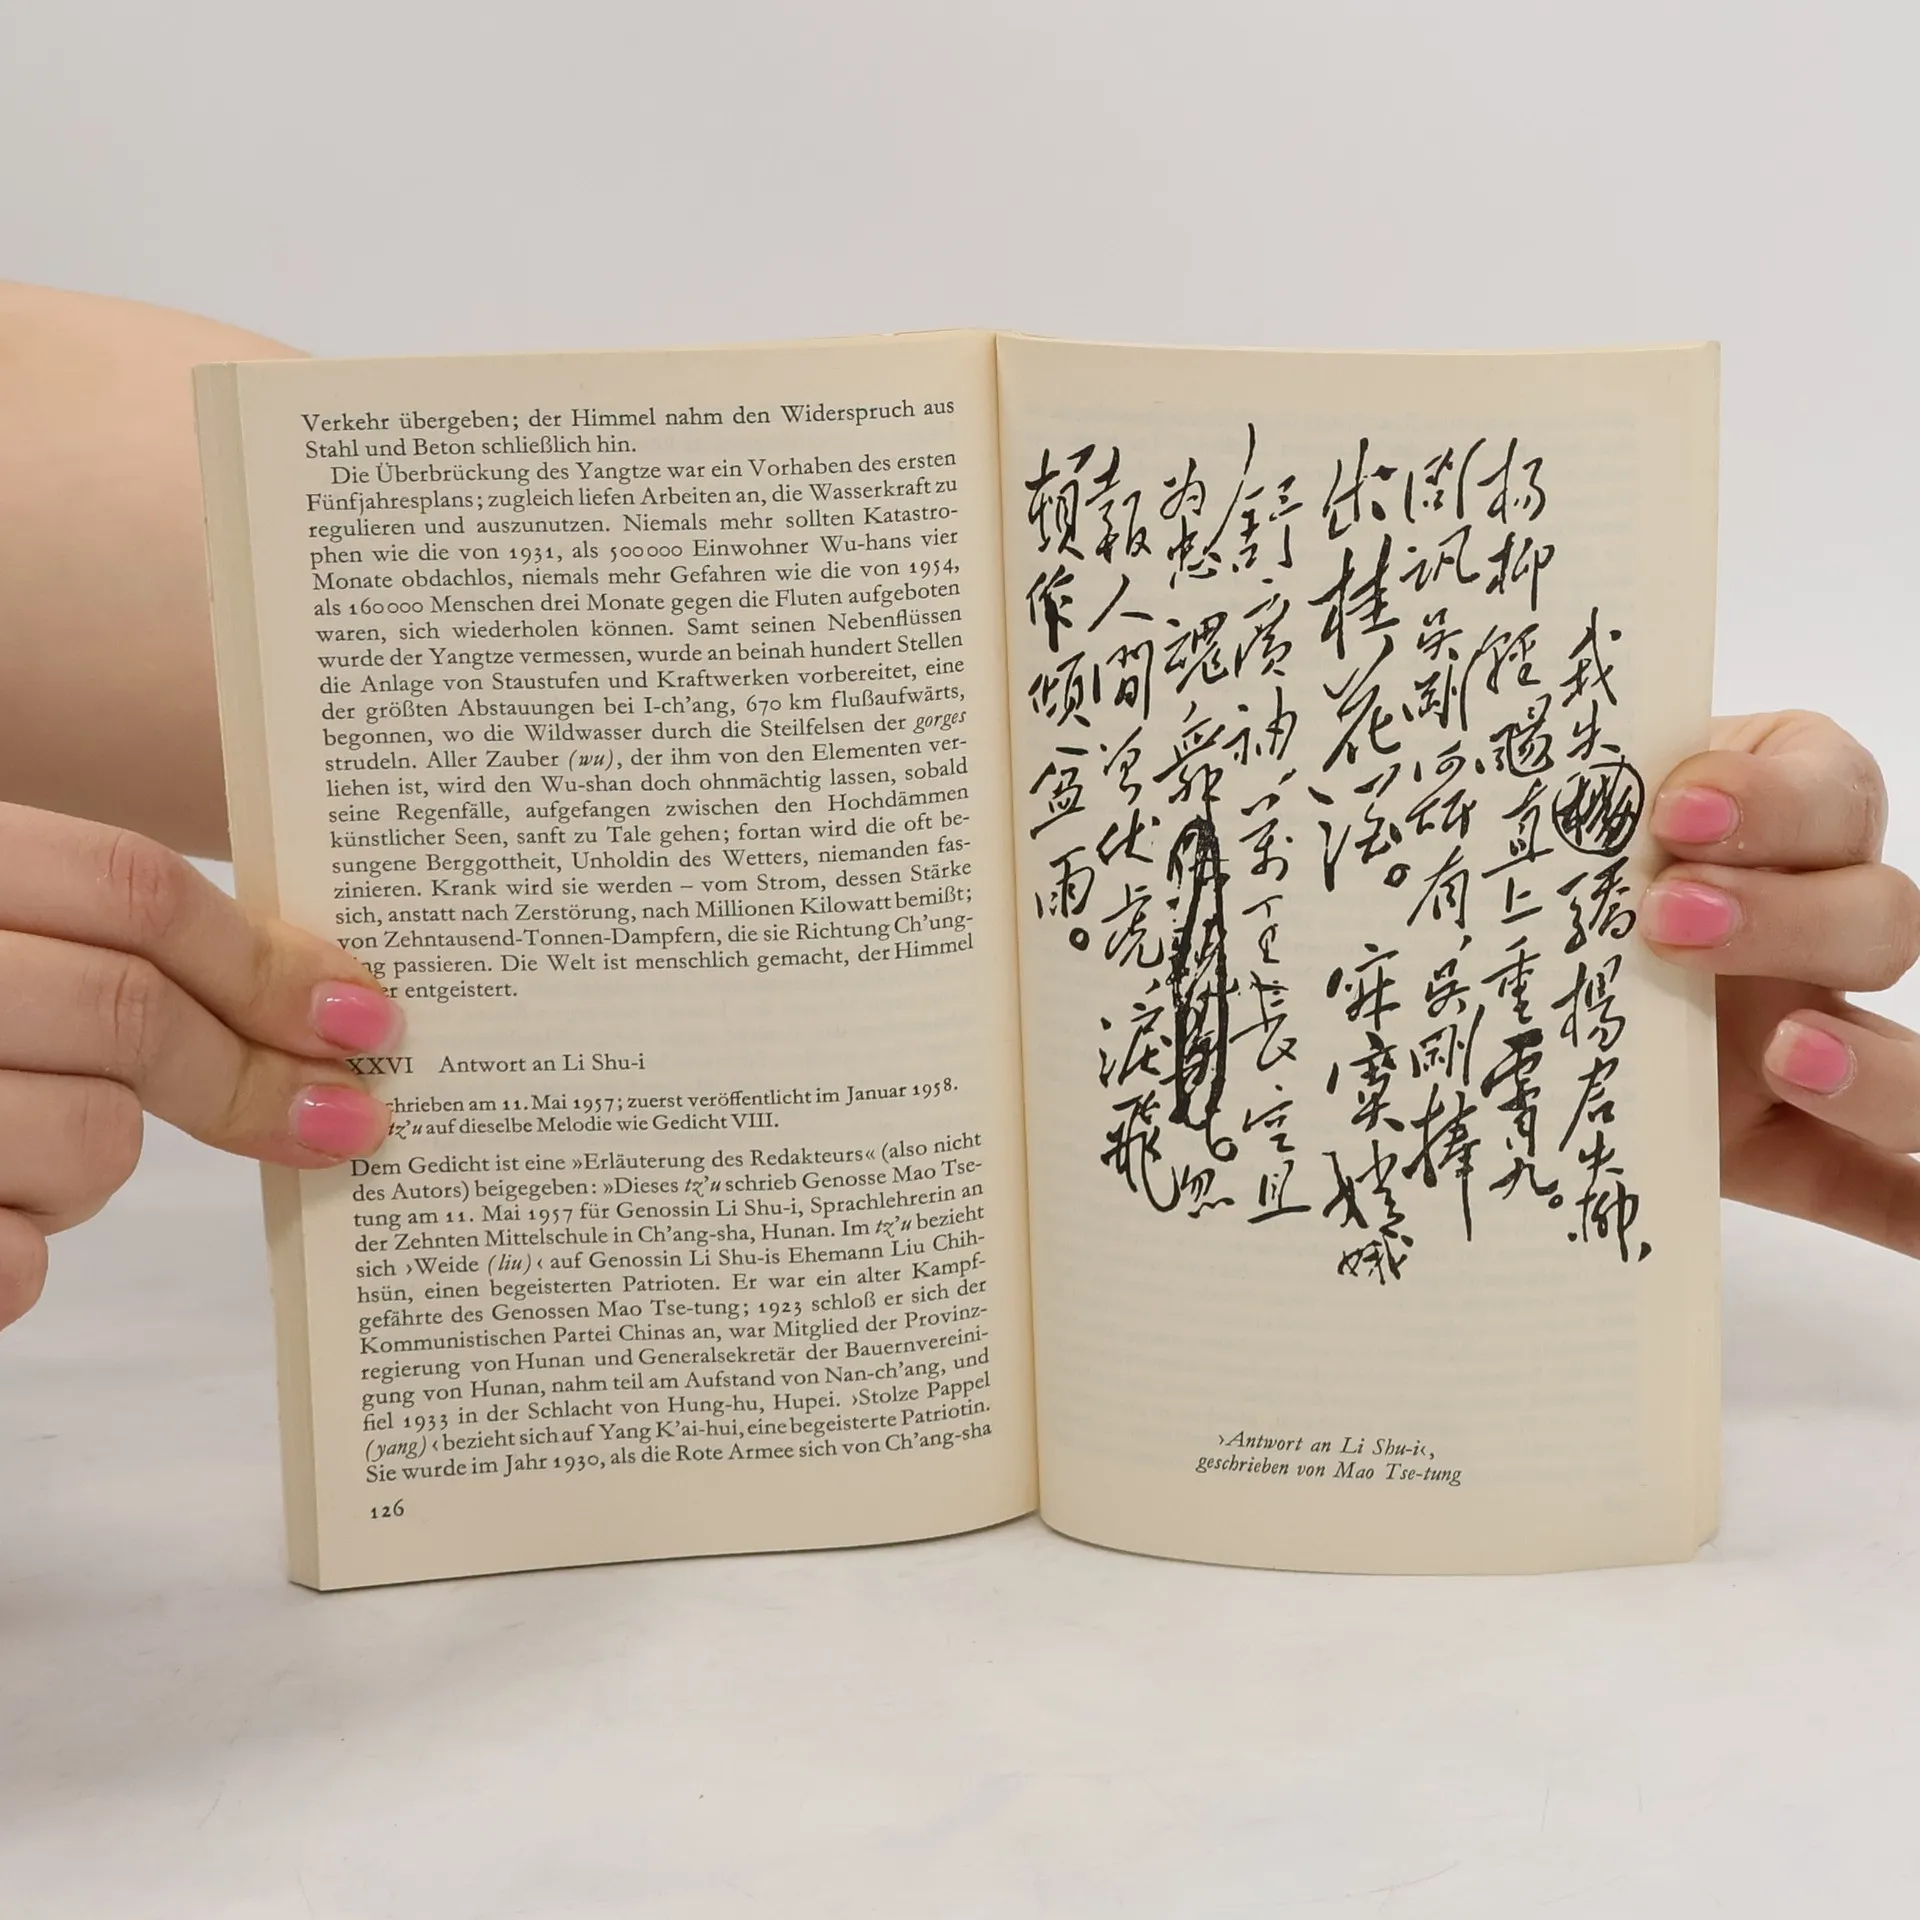 Verkehr übergeben; der Himmel nahm den Widerspruch aus
Stahl und Beton schließlich hin.
Die Überbrückung des Yangtze war ein Vorhaben des ersten
Fünfjahresplans; zugleich liefen Arbeiten an, die Wasserkraft zu
regulieren und auszunutzen. Niemals mehr sollten Katastro-
phen wie die von 1931, als 500000 Einwohner Wu-hans vier
Monate obdachlos, niemals mehr Gefahren wie die von 1954,
als 160000 Menschen drei Monate gegen die Fluten aufgeboten
waren, sich wiederholen können. Samt seinen Nebenflüssen
wurde der Yangtze vermessen, wurde an beinah hundert Stellen
die Anlage von Staustufen und Kraftwerken vorbereitet, eine
der größten Abstauungen bei I-ch'ang, 670 km flußaufwärts,
begonnen, wo die Wildwasser durch die Steilfelsen der gorges
strudeln. Aller Zauber (wu), der ihm von den Elementen ver-
liehen ist, wird den Wu-shan doch ohnmächtig lassen, sobald
seine Regenfälle, aufgefangen zwischen den Hochdämmen
künstlicher Seen, sanft zu Tale gehen; fortan wird die oft be-
sungene Berggottheit, Unholdin des Wetters, niemanden fas-
zinieren. Krank wird sie werden – vom Strom, dessen Stärke
sich, anstatt nach Zerstörung, nach Millionen Kilowatt bemißt;
von Zehntausend-Tonnen-Dampfern, die sie Richtung Ch'ung-
ng passieren. Die Welt ist menschlich gemacht, der Himmel
er entgeistert.
XXVI Antwort an Li Shu-i
chrieben am 11. Mai 1957; zuerst veröffentlicht im Januar 1958.
tz'u auf dieselbe Melodie wie Gedicht VIII.
Dem Gedicht ist eine »Erläuterung des Redakteurs« (also nicht
des Autors) beigegeben: »Dieses tz'u schrieb Genosse Mao Tse-
tung am 11. Mai 1957 für Genossin Li Shu-i, Sprachlehrerin an
der Zehnten Mittelschule in Ch'ang-sha, Hunan. Im tz'u bezieht
sich ›Weide (liu)‹ auf Genossin Li Shu-is Ehemann Liu Chih-
hsün, einen begeisterten Patrioten. Er war ein alter Kampf-
gefährte des Genossen Mao Tse-tung; 1923 schloß er sich der
Kommunistischen Partei Chinas an, war Mitglied der Provinz-
regierung von Hunan und Generalsekretär der Bauernvereini-
gung von Hunan, nahm teil am Aufstand von Nan-ch'ang, und
fiel 1933 in der Schlacht von Hung-hu, Hupei. ›Stolze Pappel
(yang)‹ bezieht sich auf Yang K'ai-hui, eine begeisterte Patriotin.
Sie wurde im Jahr 1930, als die Rote Armee sich von Ch'ang-sha
126
我失驕楊君失柳,
楊柳輕颺直上重霄九。
問訊吳剛何所有,吳剛捧
出桂花酒。寂寞嫦娥
舒廣袖,萬里長空且
為忠魂舞。忽
報人間曾伏虎,淚飛
頓作傾盆雨。
›Antwort an Li Shu-i‹,
geschrieben von Mao Tse-tung